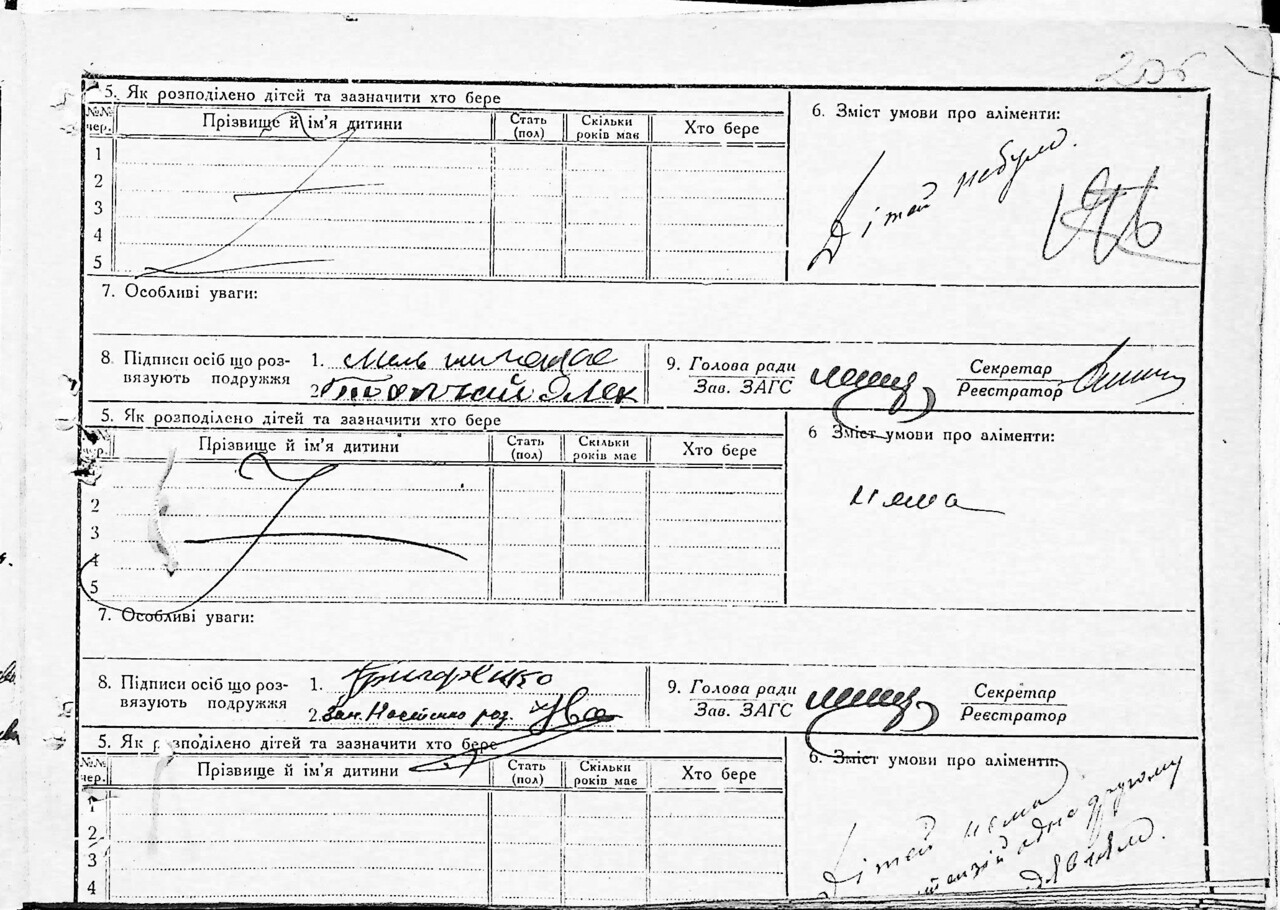 206
5. Як розподілено дітей та зазначити хто бере
№№ чер. Прізвище й ім'я дитини Стать (пол) Скільки років має Хто бере
1
2
3
4
5
6. Зміст умови про аліменти:
Дітей небуло.
7. Особливі уваги:
8. Підписи осіб що роз-
вязують подружжя
1.
2.
9. Голова ради
Зав. ЗАГС
Секретар
Реєстратор
5. Як розподілено дітей та зазначити хто бере
чер. Прізвище й ім'я дитини Стать (пол) Скільки років має Хто бере
1
2
3
4
5
6 Зміст умови про аліменти:
нема
7. Особливі уваги:
8. Підписи осіб що роз-
вязують подружжя
1. Григоренко
2.
9. Голова ради
Зав. ЗАГС
Секретар
Реєстратор
5. Як розподілено дітей та зазначити хто бере
№№ чер. Прізвище й ім'я дитини Стать (пол) Скільки років має Хто бере
1
2
3
4
6. Зміст умови про аліменти:
Дітей нема
одне другому